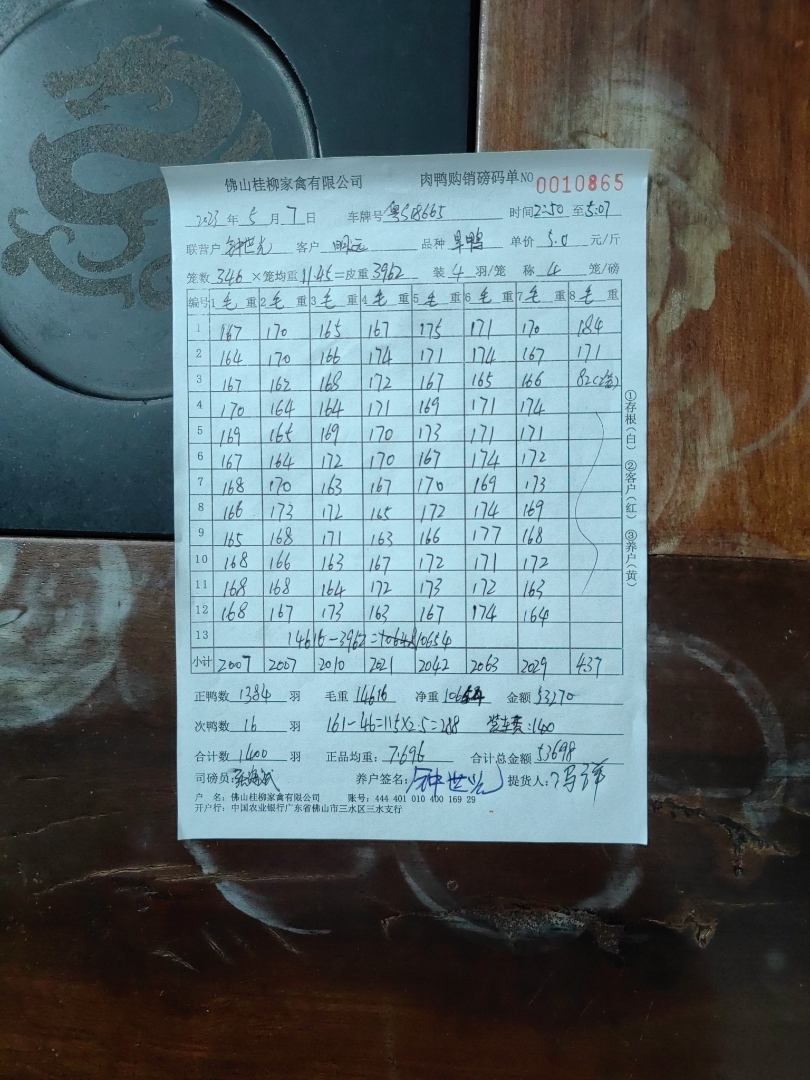 佛山桂柳家禽有限公司 肉鸭购销磅码单NO 0010865
2023 年 5 月 7 日 车牌号 粤S08665 时间 2:50 至 5:07
联营户 钟世光 客户 明远 品种 单价 5.0 元/斤
笼数 346 ×笼均重 11.45 =皮重 3962 装 4 羽/笼 称 4 笼/磅
编号 1 毛 重 2 毛 重 3 毛 重 4 毛 重 5 毛 重 6 毛 重 7 毛 重 8 毛 重
1 167 170 165 167 175 171 170 184
2 164 170 166 174 171 174 167 171
3 167 162 168 172 167 165 166 82(2笼)
4 170 164 164 171 169 171 174
5 169 165 169 170 173 171 171
6 167 164 172 170 167 174 172
7 168 170 163 167 170 169 173
8 166 173 172 165 172 174 169
9 165 168 171 163 166 177 168
10 168 166 163 167 172 171 172
11 168 168 164 172 173 172 163
12 168 167 173 163 167 174 164
13 14616-3962= 10654
小计 2007 2007 2010 2021 2042 2063 2029 437
正鸭数 1384 羽 毛重 14616 净重 金额 53270
次鸭数 16 羽 161-46=115×2.5=288 装车费:140
合计数 1400 羽 正品均重: 7.696 合计总金额 53698
司磅员: 养户签名: 钟世光 提货人:
户 名: 佛山桂柳家禽有限公司 账号: 444 401 010 400 169 29
开户行: 中国农业银行广东省佛山市三水区三水支行
①存根(白) ②客户(红) ③养户(黄)